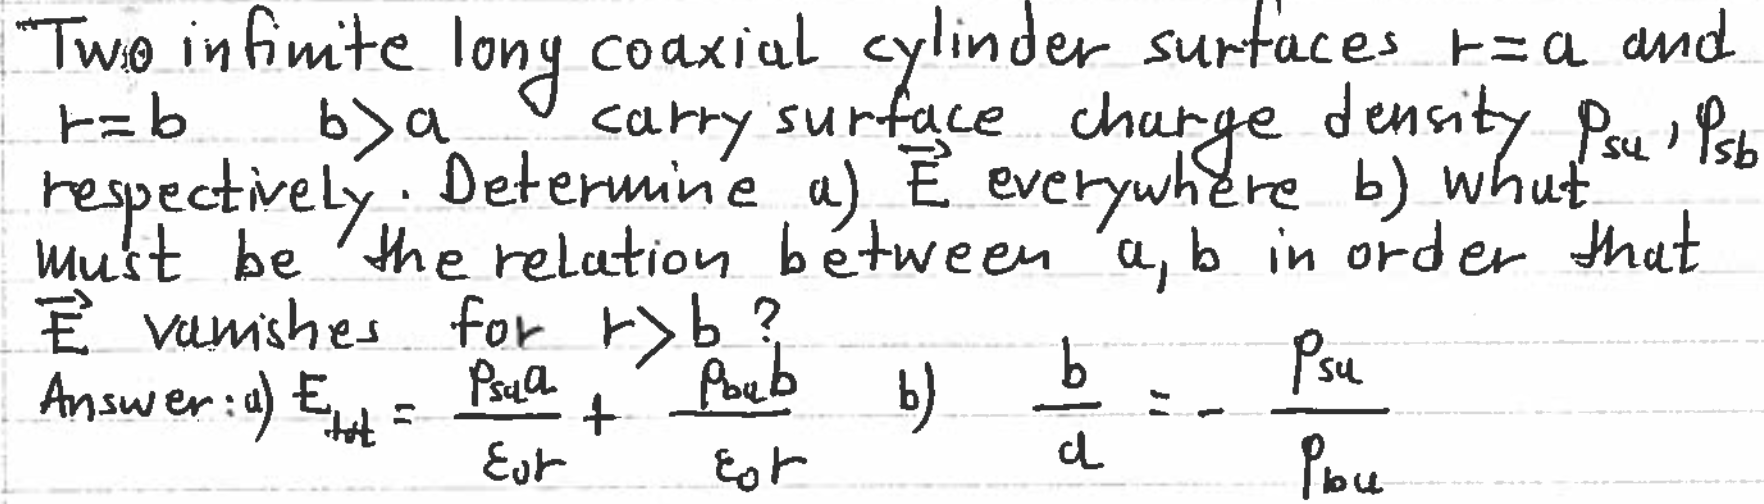 Two infinite long coaxial cylinder surfaces r=a and
r=b b>a carry surface charge density ρsa, ρsb
respectively. Determine a) E⃗ everywhere b) what
must be the relation between a, b in order that
E⃗ vanishes for r>b?
Answer: a) E_tot = ρsa a / ε₀r + ρba b / ε₀r b) b/a = - ρsa / ρba